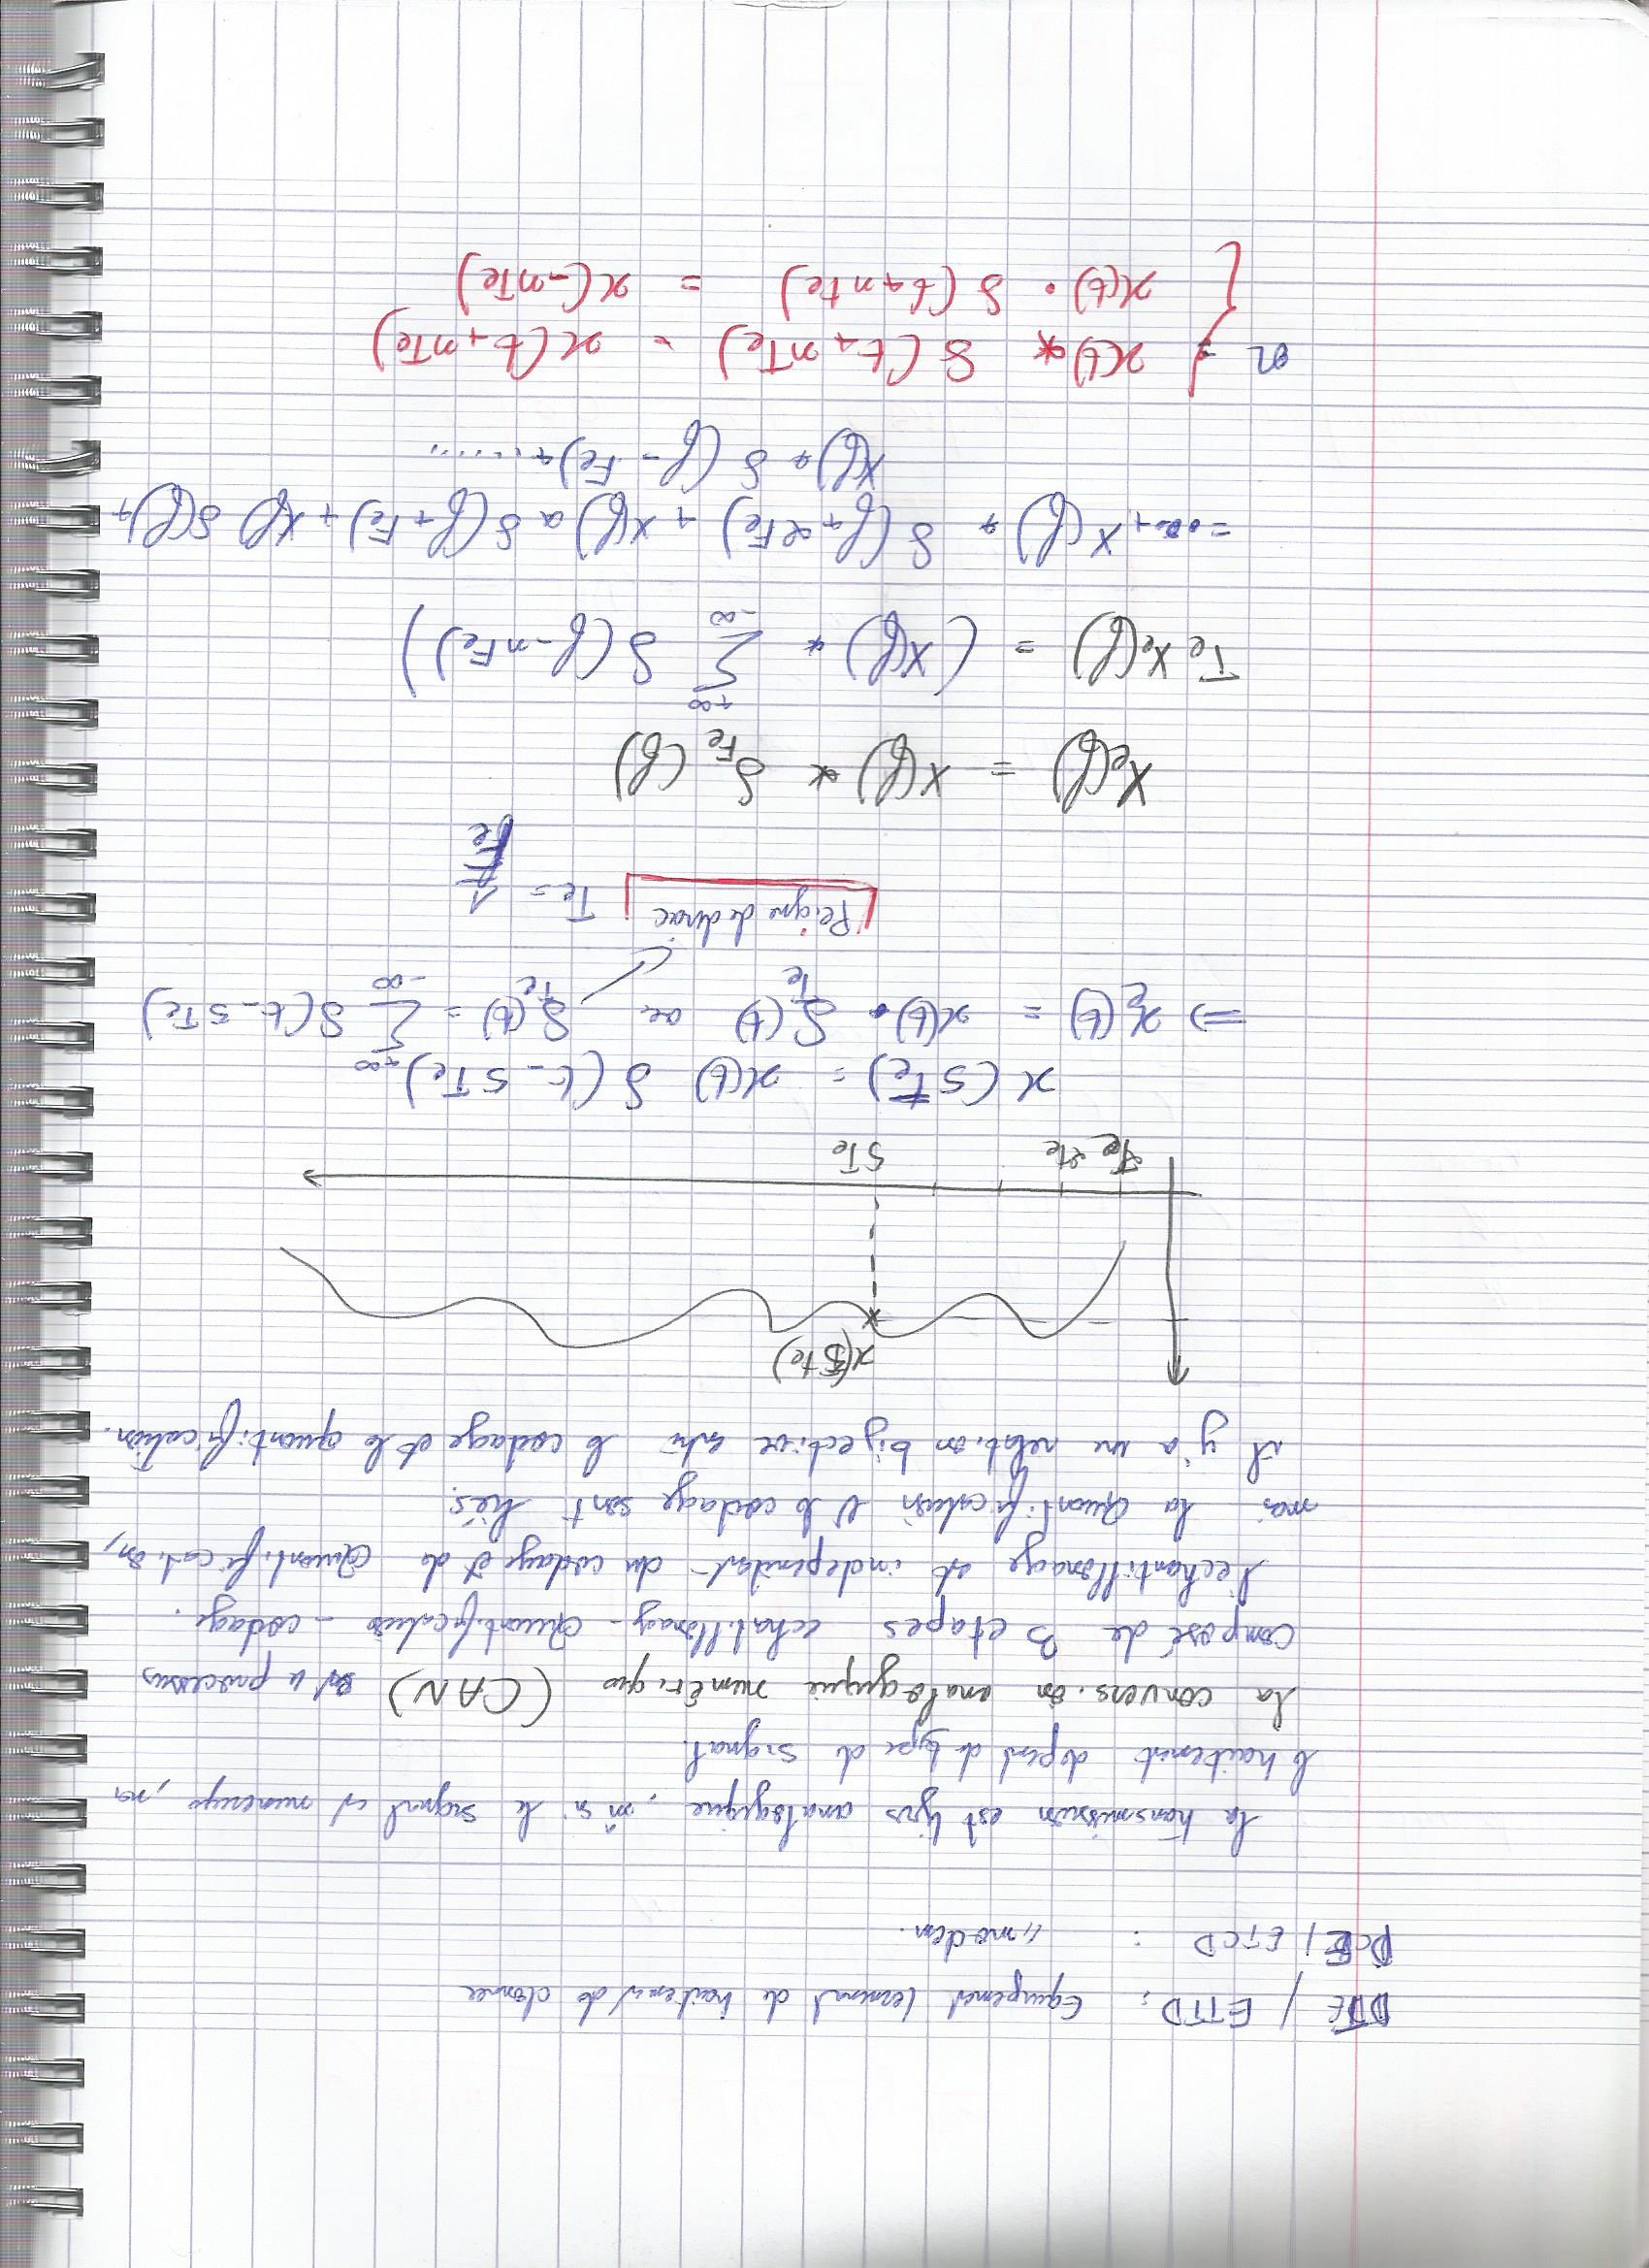 DTE / ETTD : Equipemet terminal de traitemt de donnee
DCE / ETCD : " modem.
la transmission est tjrs analogique, m̂ si le signal est numerique, mn
le traitemnt depend du type de signal.
La conversion analogique numérique (CAN) est u processus
composé de 3 etapes echatillonag - Quantification - codage.
l'echantillonage est independat du codage et de Quantification,
mais la Quantification & le codage sont liés.
Il y a une relation bijective entre le codage et la quantification.
x(5Te)
Te 2Te 5Te
x(5Te) = x(t) δ(t - 5Te)
⇒ xe(t) = x(t) . δTe(t) où δTe(t) = Σ_{-∞}^{+∞} δ(t - 5Te)
Peigne de dirac Te = 1/Fe
Xe(f) = X(f) * δFe(f)
Te Xe(f) = (X(f) * Σ_{-∞}^{+∞} δ(f - nFe))
= ... + X(f) * δ(f + 2Fe) + X(f) * δ(f + Fe) + X(f) δ(f) +
X(f) * δ(f - Fe) + ......
or = { x(t) * δ(t + nTe) = x(t + nTe)
x(t) . δ(t + nte) = x(-nTe)